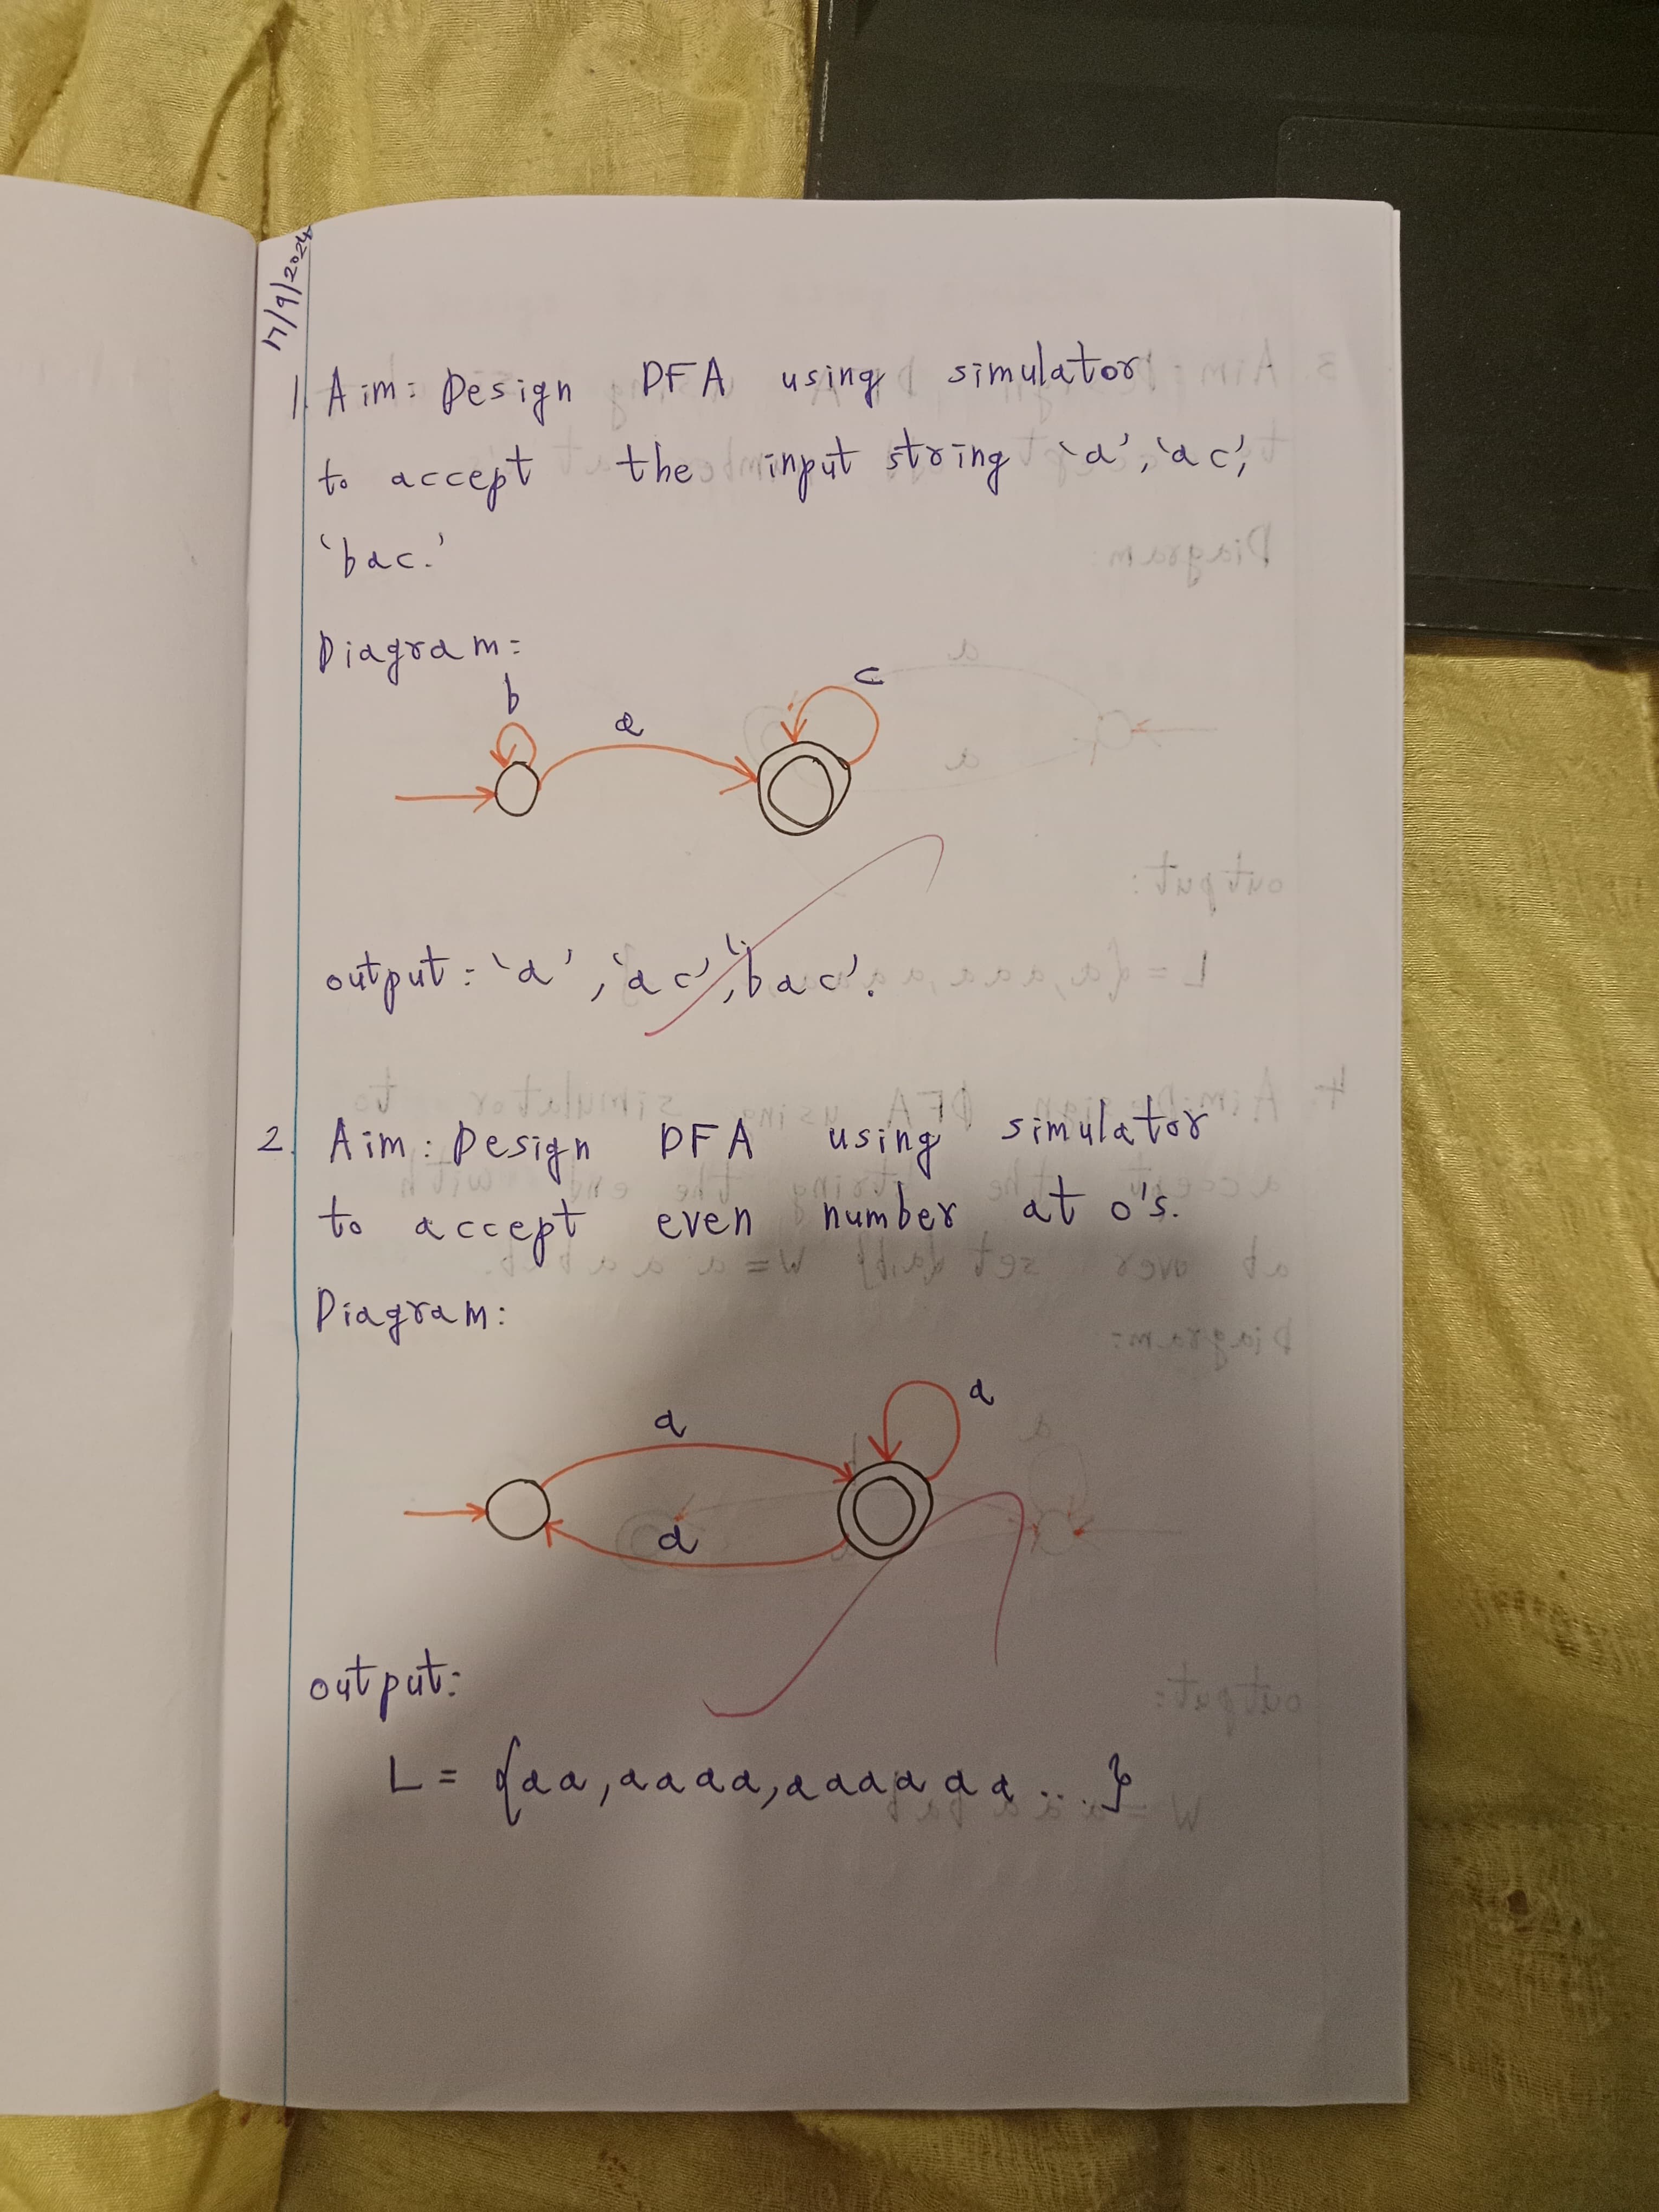 17/9/2024
1. Aim: Design DFA using simulator
to accept the input string 'a', 'ac',
'bac.'
Diagram:
b
a
c
output: 'a', 'ac', 'bac'.
2. Aim: Design DFA using simulator
to accept even number at 0's.
Diagram:
a
a
a
output:
L = {aa, aaaa, aaaaaa ...}